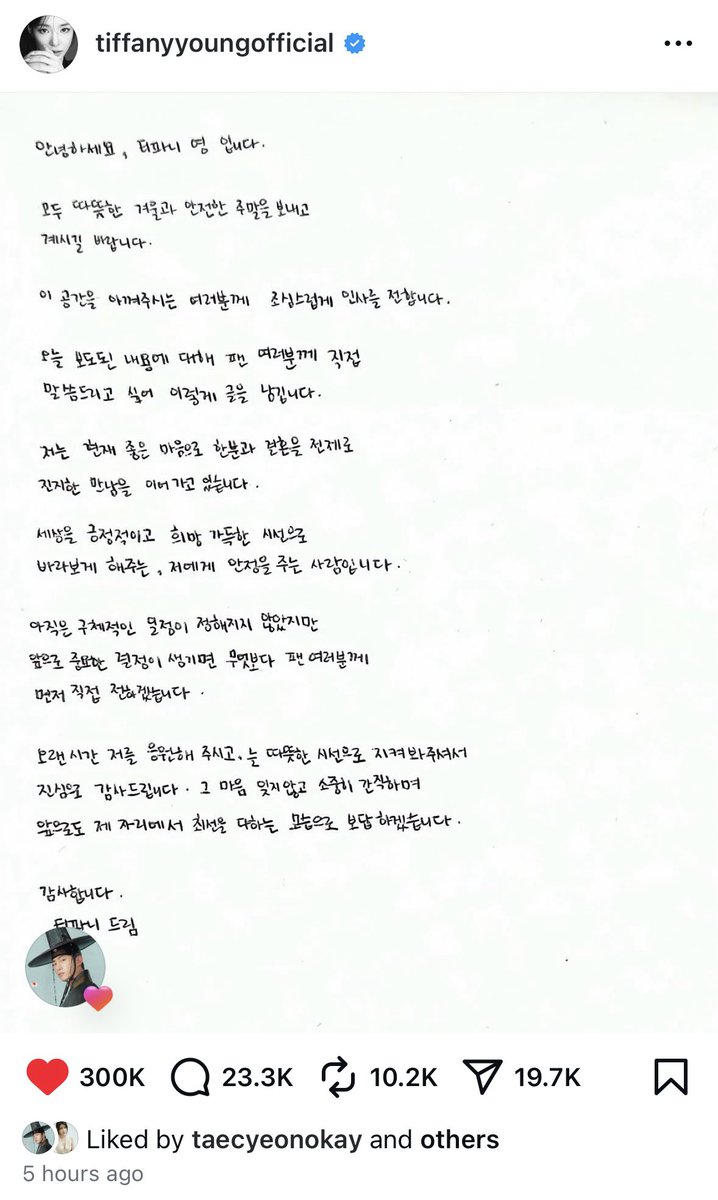 tiffanyyoungofficial
안녕하세요, 티파니 영 입니다.
모두 따뜻한 겨울과 안전한 주말을 보내고
계시길 바랍니다.
이 공간을 아껴주시는 여러분께 조심스럽게 인사를 전합니다.
오늘 보도된 내용에 대해 팬 여러분께 직접
말씀드리고 싶어 이렇게 글을 남깁니다.
저는 현재 좋은 마음으로 한분과 결혼을 전제로
진지한 만남을 이어가고 있습니다.
세상을 긍정적이고 희망 가득한 시선으로
바라보게 해주는, 저에게 안정을 주는 사람입니다.
아직은 구체적인 일정이 정해지지 않았지만
앞으로 중요한 결정이 생기면 무엇보다 팬 여러분께
먼저 직접 전하겠습니다.
오랜시간 저를 응원해 주시고, 늘 따뜻한 시선으로 지켜봐주셔서
진심으로 감사드립니다. 그 마음 잊지않고 소중히 간직하며
앞으로도 제 자리에서 최선을 다하는 모습으로 보답하겠습니다.
감사합니다.
티파니 드림
300K 23.3K 10.2K 19.7K
Liked by taecyeonokay and others
5 hours ago